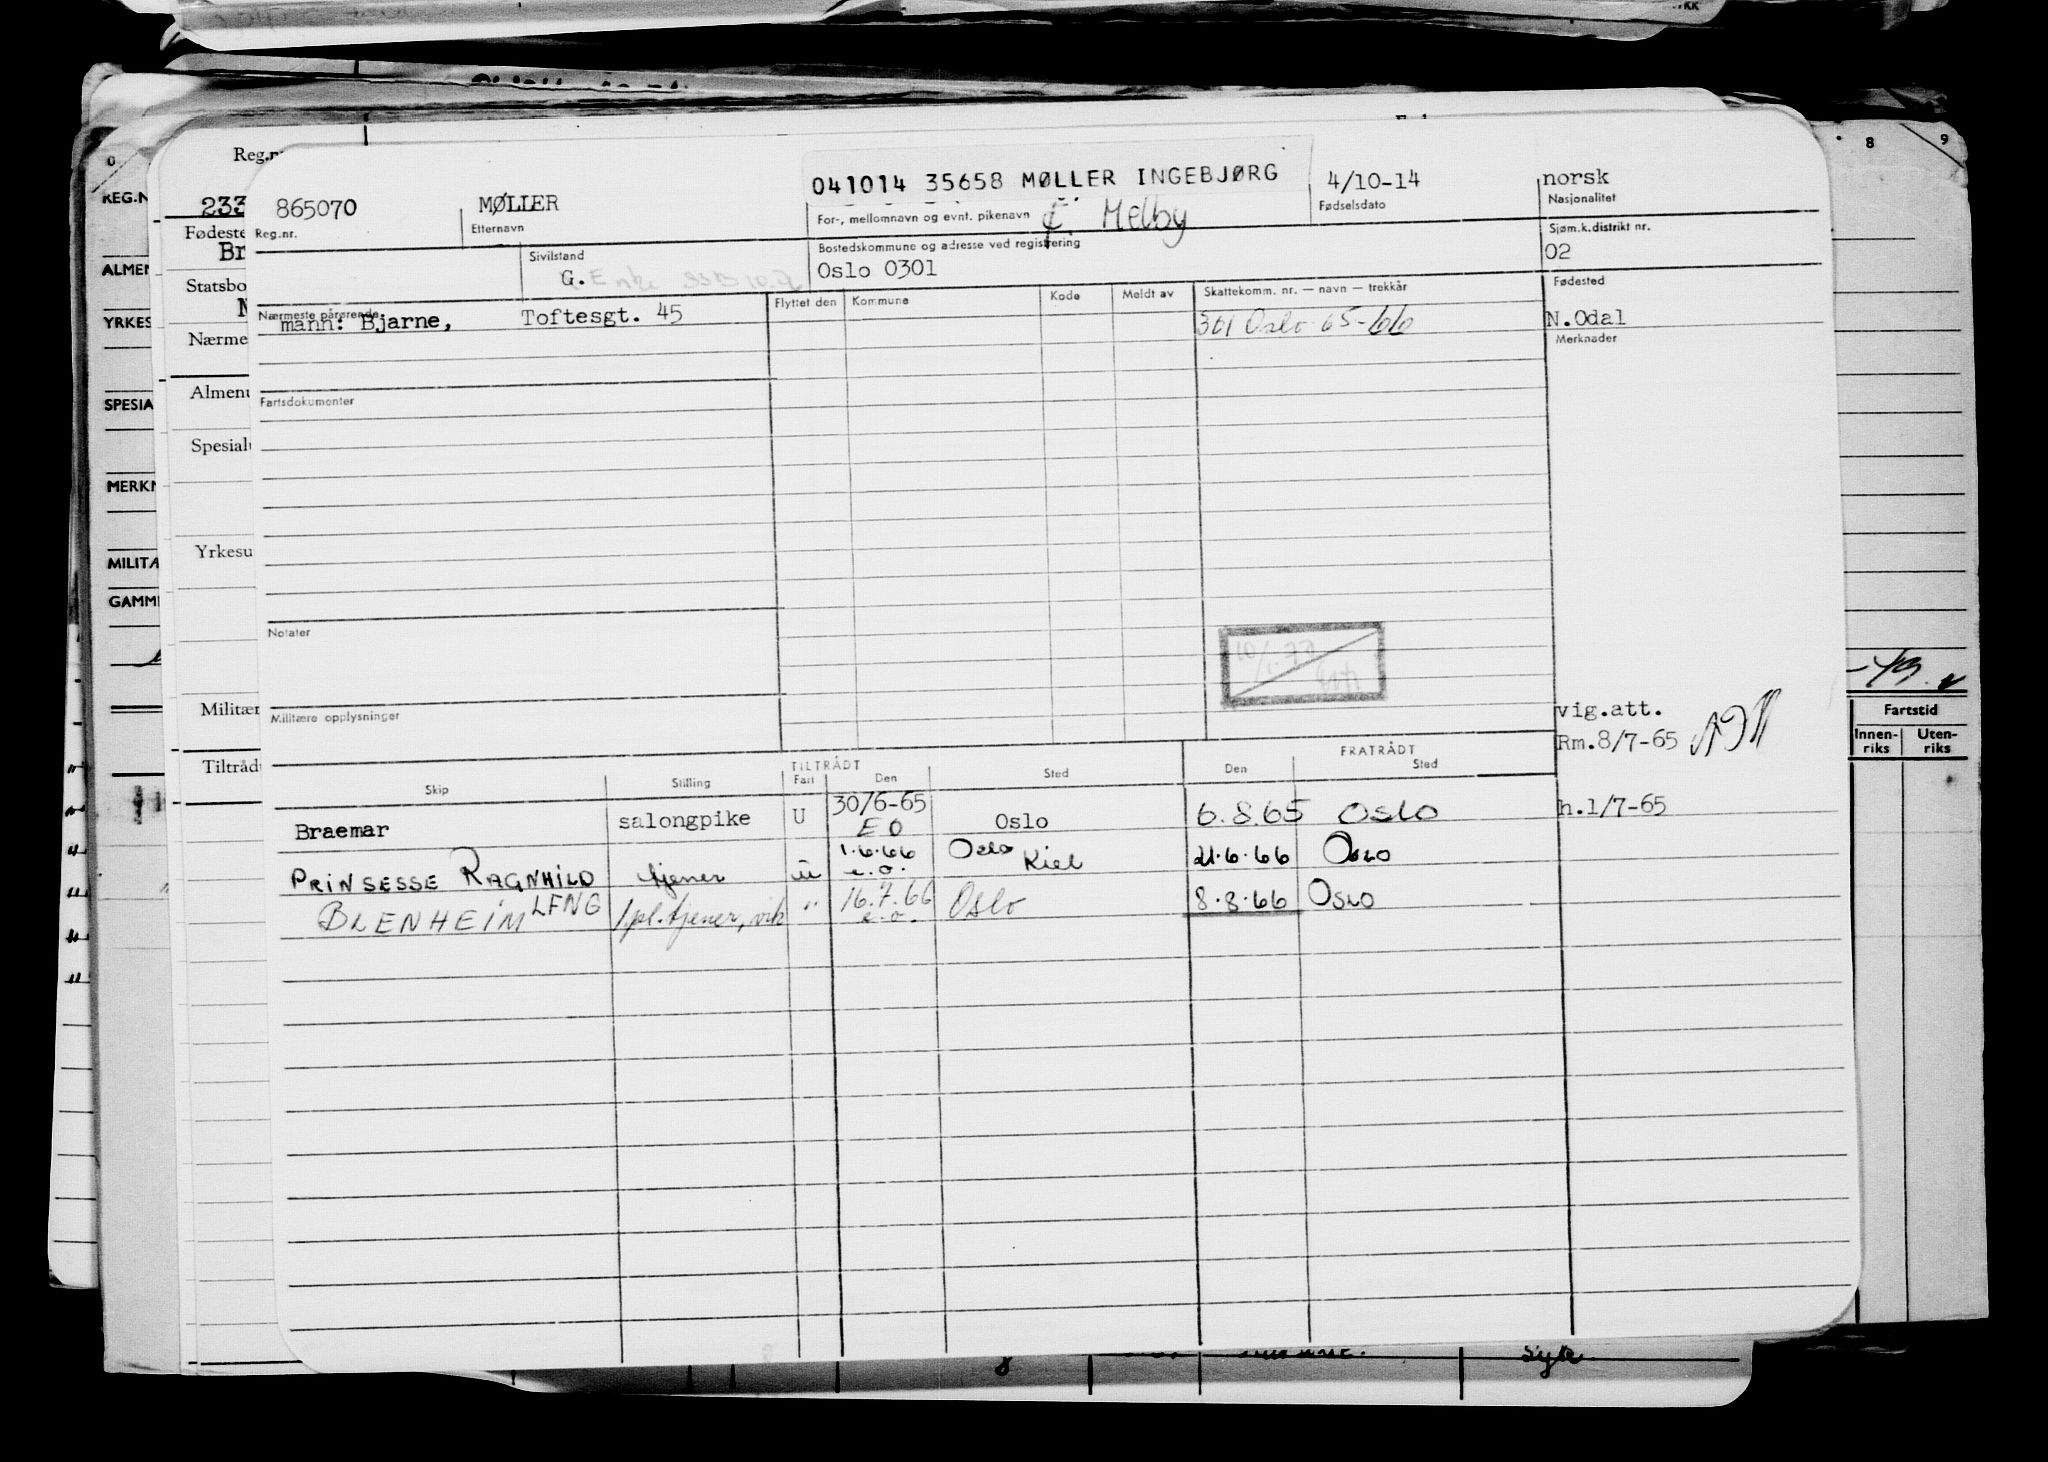 Reg.nr. 865070
MØLLER
Etternavn
041014 35658 MØLLER INGEBJØRG
For-, mellomnavn og evnt. pikenavn
f. Melby
4/10-14
Fødselsdato
norsk
Nasjonalitet
Sivilstand
G. Enke
Bostedskommune og adresse ved registrering
Oslo 0301
Sjøm.k.distrikt nr.
02
Nærmeste pårørende
mann: Bjarne, Toftesgt. 45
Flyttet den Kommune Kode Meldt av Skattekomm. nr. — navn — trekkår
301 Oslo 65-66
Fødested
N.Odal
Merknader
Fartsdokumenter
Notater
Militære opplysninger
vig.att.
Rm.8/7-65
TILTRÅDT FRATRÅDT
Skip Stilling Fart Den Sted Den Sted
Braemar salongpike U 30/6-65 EO Oslo 6.8.65 Oslo h.1/7-65
PRINSESSE RAGNHILD tjener u 1.6.66 e.o. Oslo Kiel 21.6.66 Oslo
BLENHEIM LFNG pl.tjener, vik " 16.7.66 e.o. Oslo 8.8.66 Oslo
Reg.nr
233
Fødeste
Br
Statsbo
Nærme
Almenu
Spesialu
Yrkesu
Militær
Tiltråd
REG.N
ALMEN
YRKES
SPESIA
MERKN
MILITÆ
GAMME
8 9
Fartstid
Innen-riks Uten-riks
Syk.